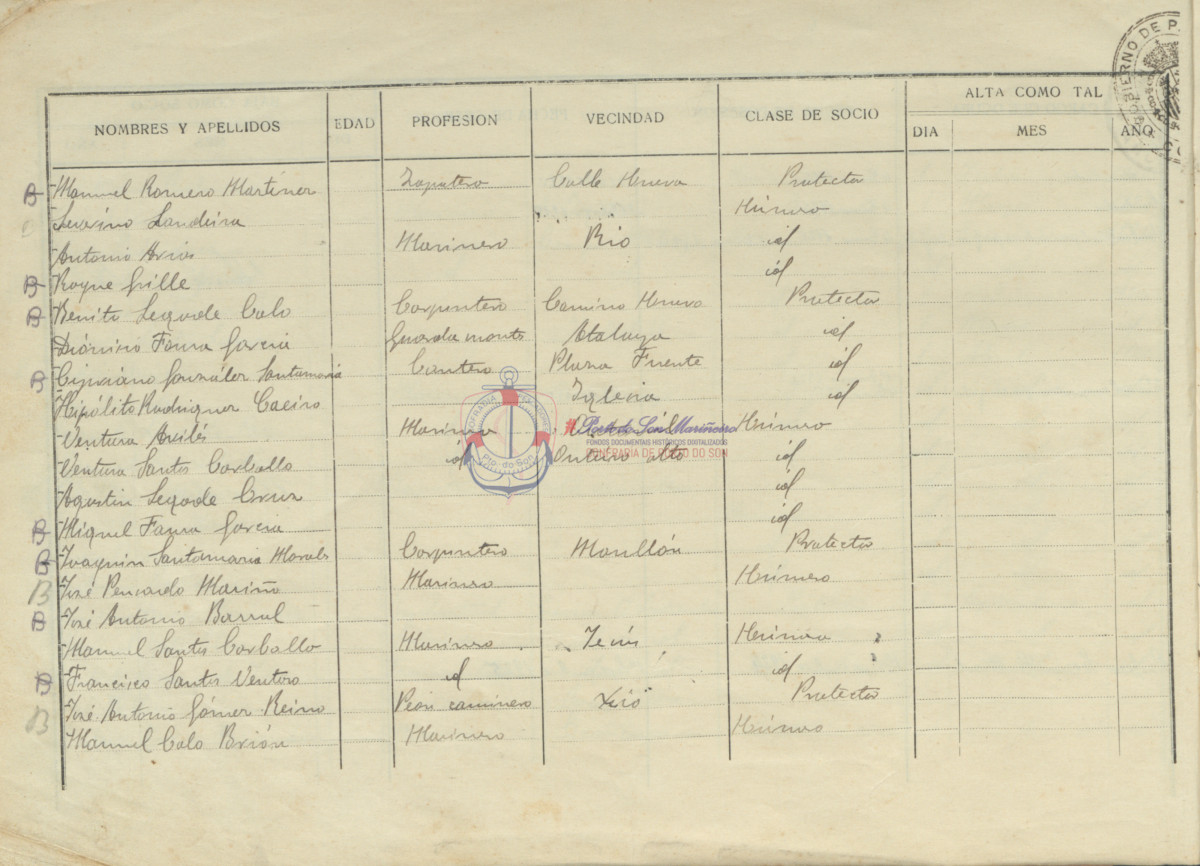 GOBIERNO DE P
NOMBRES Y APELLIDOS EDAD PROFESION VECINDAD CLASE DE SOCIO ALTA COMO TAL
DIA MES AÑO
B Manuel Romero Martinez Zapatero Calle Nueva Protector
Severino Landeira Número
Antonio Arios Marinero Rio id
B Roque Grille id
B Benito Legarde Calo Carpintero Camino Nueva Protector
Dionisio Fama Garcia Guarda monte Atalaya id
B Cipriano González Santamaria Cantero Plaza Fuente id
Hipólito Rodriguez Caeiro Iglesia id
Ventura Avilés Marinero Número
Ventura Santos Carballo id Outeiro alto id
Agustin Legarde Cruz id
B Miguel Fama Garcia id
B Joaquin Santamaria Morales Carpintero Monllón Protector
B José Pensado Mariño Marinero Número
B José Antonio Barral
Manuel Santos Carballo Marinero Número
B Francisco Santos Ventoso id id
B José Antonio Gómez Reino Peón caminero Protector
Manuel Calo Brión Marinero Número
COFRADIA
Pto. do Son
Porto do Son Mariñeiro
FONDOS DOCUMENTAIS HISTÓRICOS DIXITALIZADOS
CONFRARÍA DE PORTO DO SON